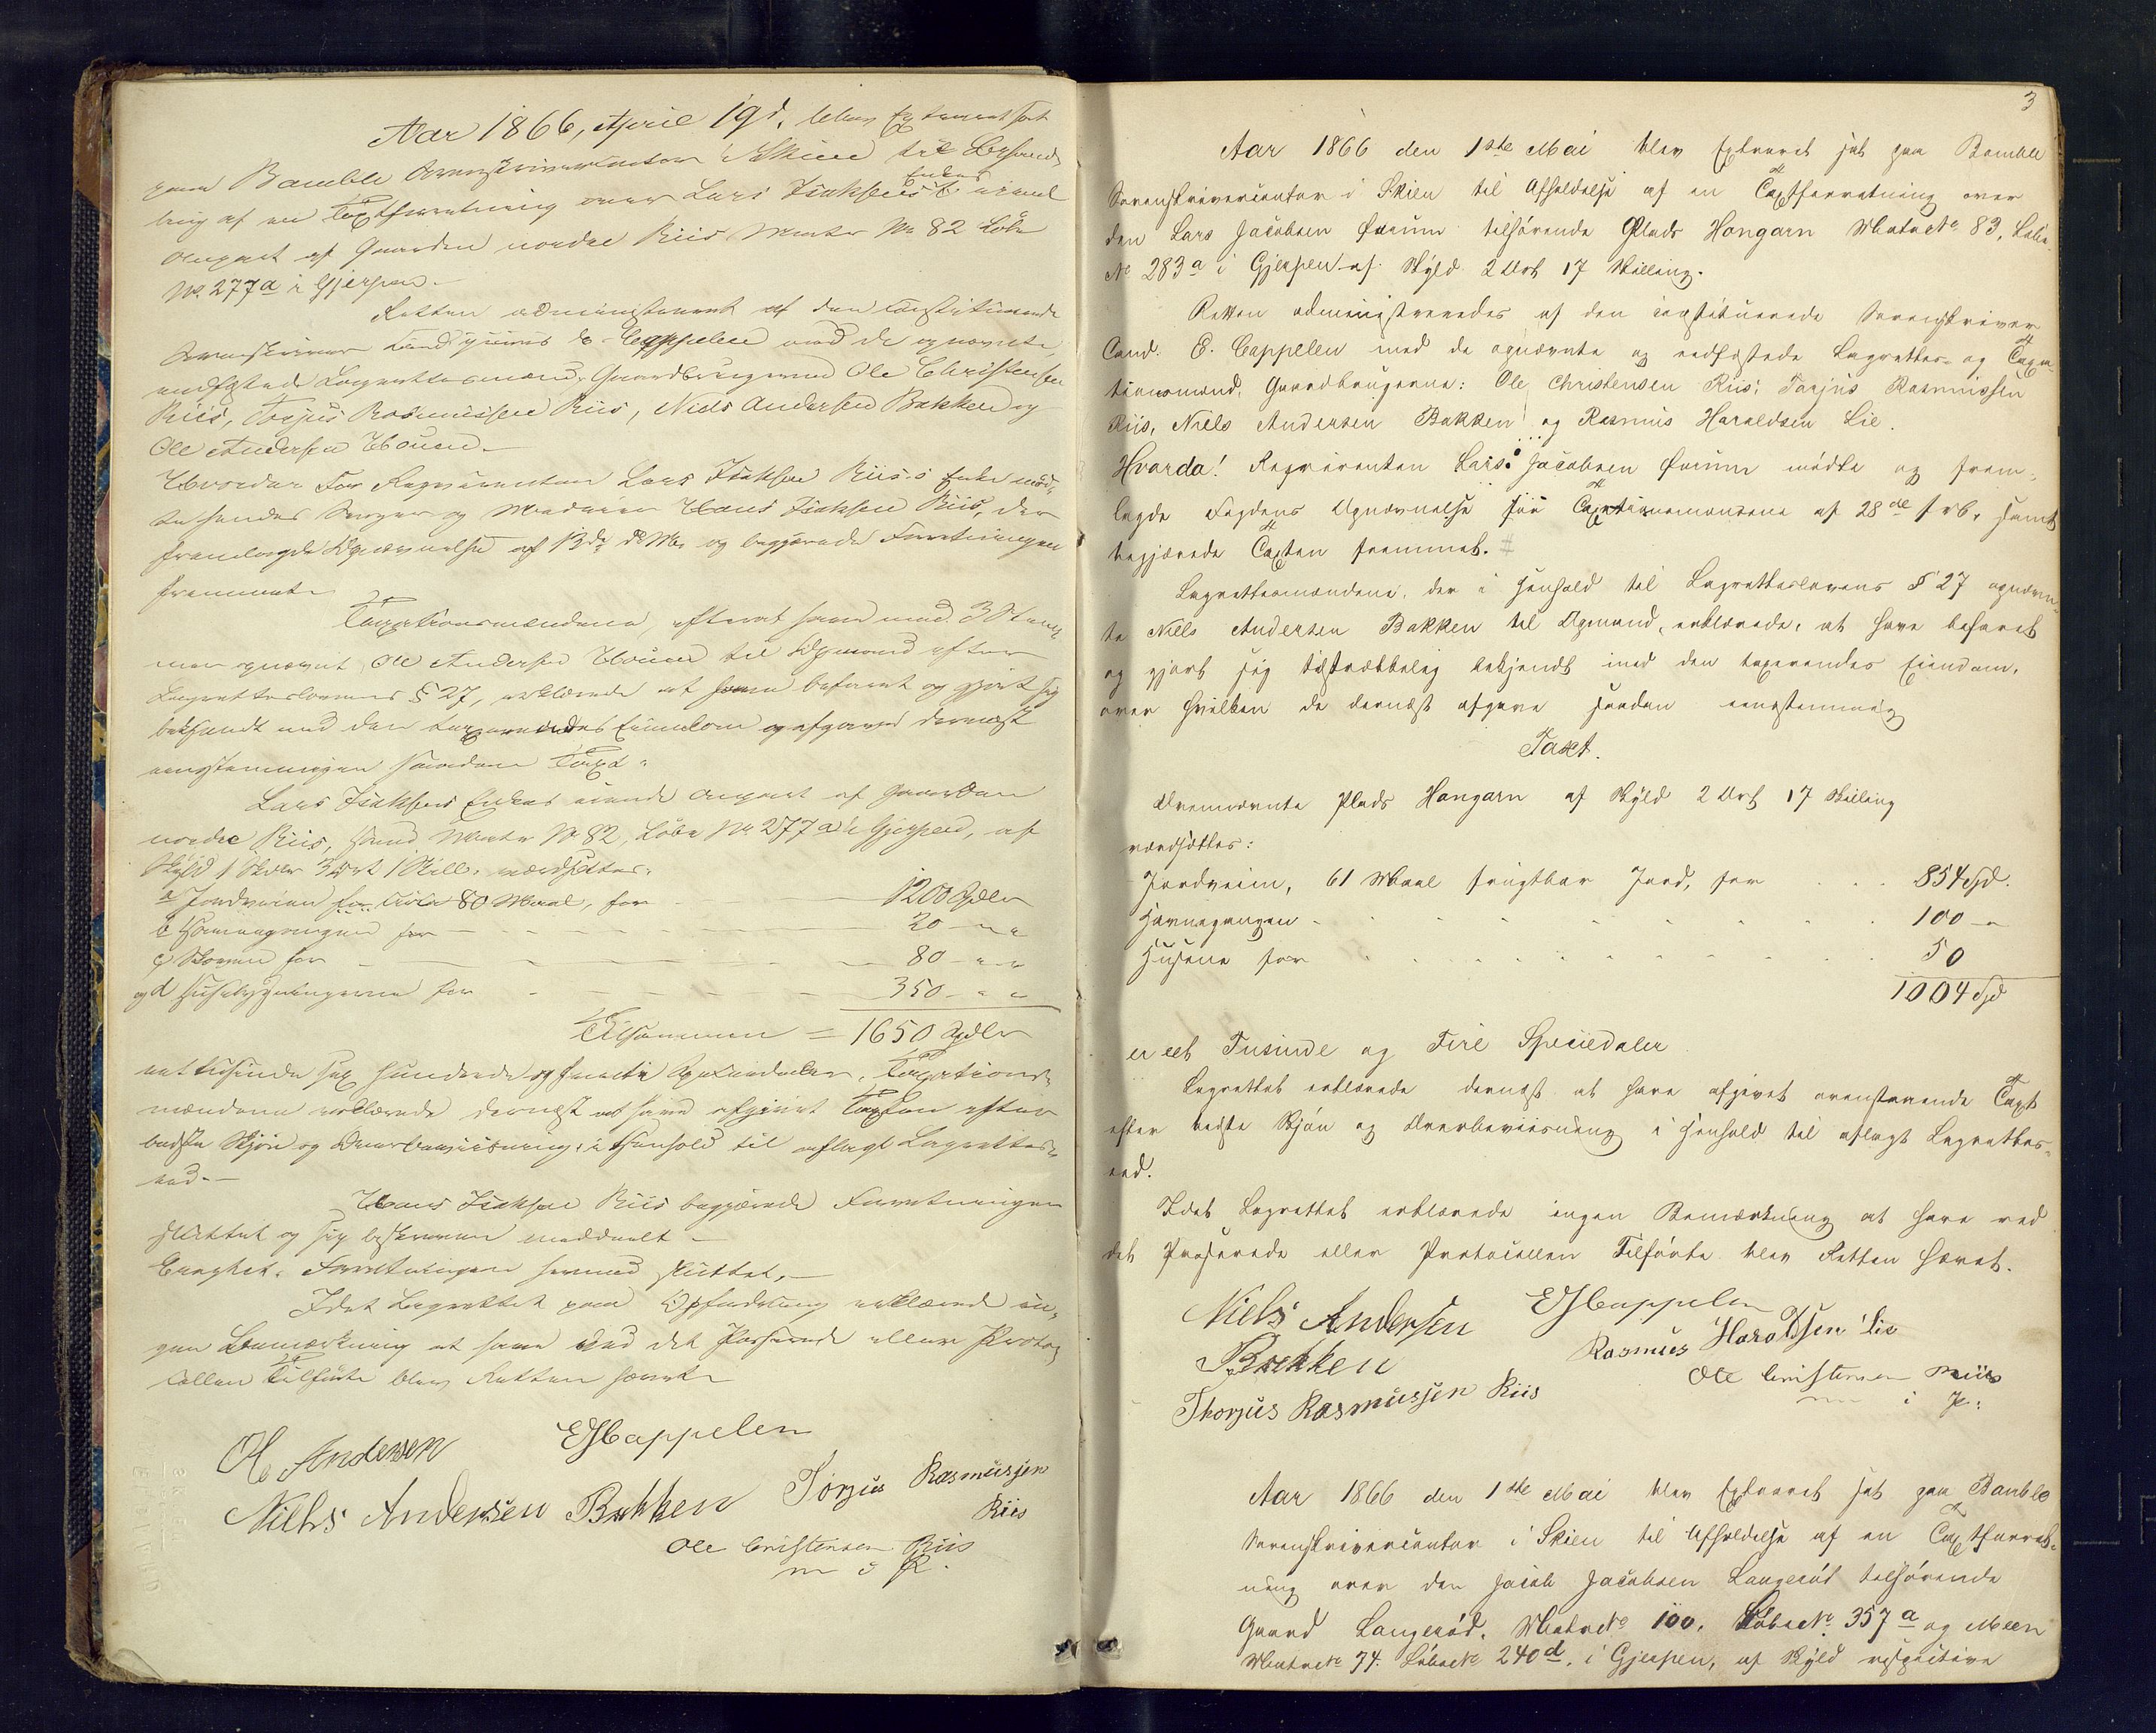 Aar 1866, April 19d. blev Extraret sat
paa Bamble Sorenskrivercontor i Skien til Behand-
ling af en Taxtforretning over Lars Isaksens Enkes eiende
Anpart af Gaarden nordre Riis Matr No 82 Løbe
No. 277a i Gjerpen.-
Retten administreret af den constituerede
Sorenskriver Cappelen med de opnævnte
eedfæstede Laugrettesmænd, Gaardbrugerne Ole Christensen
Riis, Torjus Rasmussen Riis, Niels Andersen Bakken og
Ole Andersen
Hvorda For Reqvirenten Lars Isaksen Riis's Enke mød-
te hendes og Hans Isaksen Riis, der
fremlagde Opnævnelse af 13de ds. Ms. og begjærede Forretningen
fremmet.
Taxationsmændene, efterat have med 3 Stem-
mer opnævnt Ole Andersen til Opmand efter
Laugretteslovens § 27, erklærede at have befaret og gjort sig
bekjendt med den taxerendes Eiendom og afgave dernæst
eenstemmigen saadan Taxt.
Lars Isaksens Enkes eiende Anpart af Gaarden
nordre Riis, Matr No 82, Løbe No 277a i Gjerpen, af
Skyld 1 Skdler 3 Ort 1 Skill. værdsættes.
a Jordveien for Cirka 80 Maal, for 1200 Spdlr
b Havnegangen for - - - 20 - " "
c Skoven for - - - 80 - " "
og d Husebygningerne for - - - 350 - " "
Tilsammen = 1650 Spdlr
eet tusinde sex hundrede og femti Speciedaler. Taxations-
mændene erklærede dernæst at have afgivet Taxten efter
bedste Skjøn og Overbeviisning i Henhold til aflagt Laugrettes-
eed.-
Hans Isaksen Riis begjærede Forretningen
sluttet og sig beskreven meddeelt -
Eragtet. Forretningen hermed sluttet.-
Idet Laugrettet paa Opfordring erklærede in-
gen Bemærkning at have ved det Passerede eller Proto-
collen Tilførte blev Retten hævet.
Ole Andersen EJCappelen
Niels Andersen Bakken Torjus Rasmussen
Riis
Ole Cristensen Riis
m i P.
3
Aar 1866 den 1ste Mai blev Extraret sat paa Bamble
Sorenskrivercontor i Skien til Afholdelse af en Taxtforretning over
den Lars Jacobsen tilhørende Plads Hangarn Matr No 83, Løbe
No 283a i Gjerpen af Skyld 2 Ort 17 Skilling.
Retten administreredes af den constituerede Sorenskriver
Cand. E. Cappelen med de opnævnte og eedfæstede Lagrettes- og Taxa-
tionsmænd, Gaardbrugerne: Ole Christensen Riis, Torjus Rasmussen
Riis, Niels Andersen Bakken og Rasmus Haraldsen Lie.
Hvorda! Reqvirenten Lars Jacobsen mødte og frem-
lagde Fogdens Opnævnelse paa Taxtationsmændene af 28de f. M., samt
begjærede Taxten fremmet.
Lagrettesmændene, der i Henhold til Lagretteslovens § 27 opnævn-
te Niels Andersen Bakken til Opmand, erklærede, at have befaret
og gjort sig tilstrækkelig bekjendt med den taxerendes Eiendom,
over hvilken de dernæst afgave saadan eenstemmig
Taxt.
Ovennævnte Plads Hangarn af Skyld 2 Ort 17 Skilling
værdsættes:
Jordveien, 61 Maal frugtbar Jord, for . . . 854 Spd.
Havnegangen - - - 100 -"
Husene for - - - 50
1004 Spd
er eet Tusinde og Fire Speciedaler
Lagrettet erklærede dernæst at have afgivet ovenstaaende Taxt
efter bedste Skjøn og Overbeviisning i Henhold til aflagt Lagrettes-
eed.
Idet Lagrettet erklærede ingen Bemærkning at have ved
det Passerede eller Protocollen Tilførte blev Retten hævet.
Niels Andersen EJCappelen
Bakken Rasmus Haroldsen Lie
Thorjus Rasmussen Riis Ole Cristensen Riis
m i P:
Aar 1866 den 1ste Mai blev Extraret sat paa Bamble
Sorenskrivercontor i Skien til Afholdelse af en Taxtforret-
ning over den Jacob Jacobsen Langerød tilhørende
Gaard Langerød, Matr No 100. Løbe No 357a og Meen
Matr No 74. Løbe No 240d, i Gjerpen, af Skyld respective